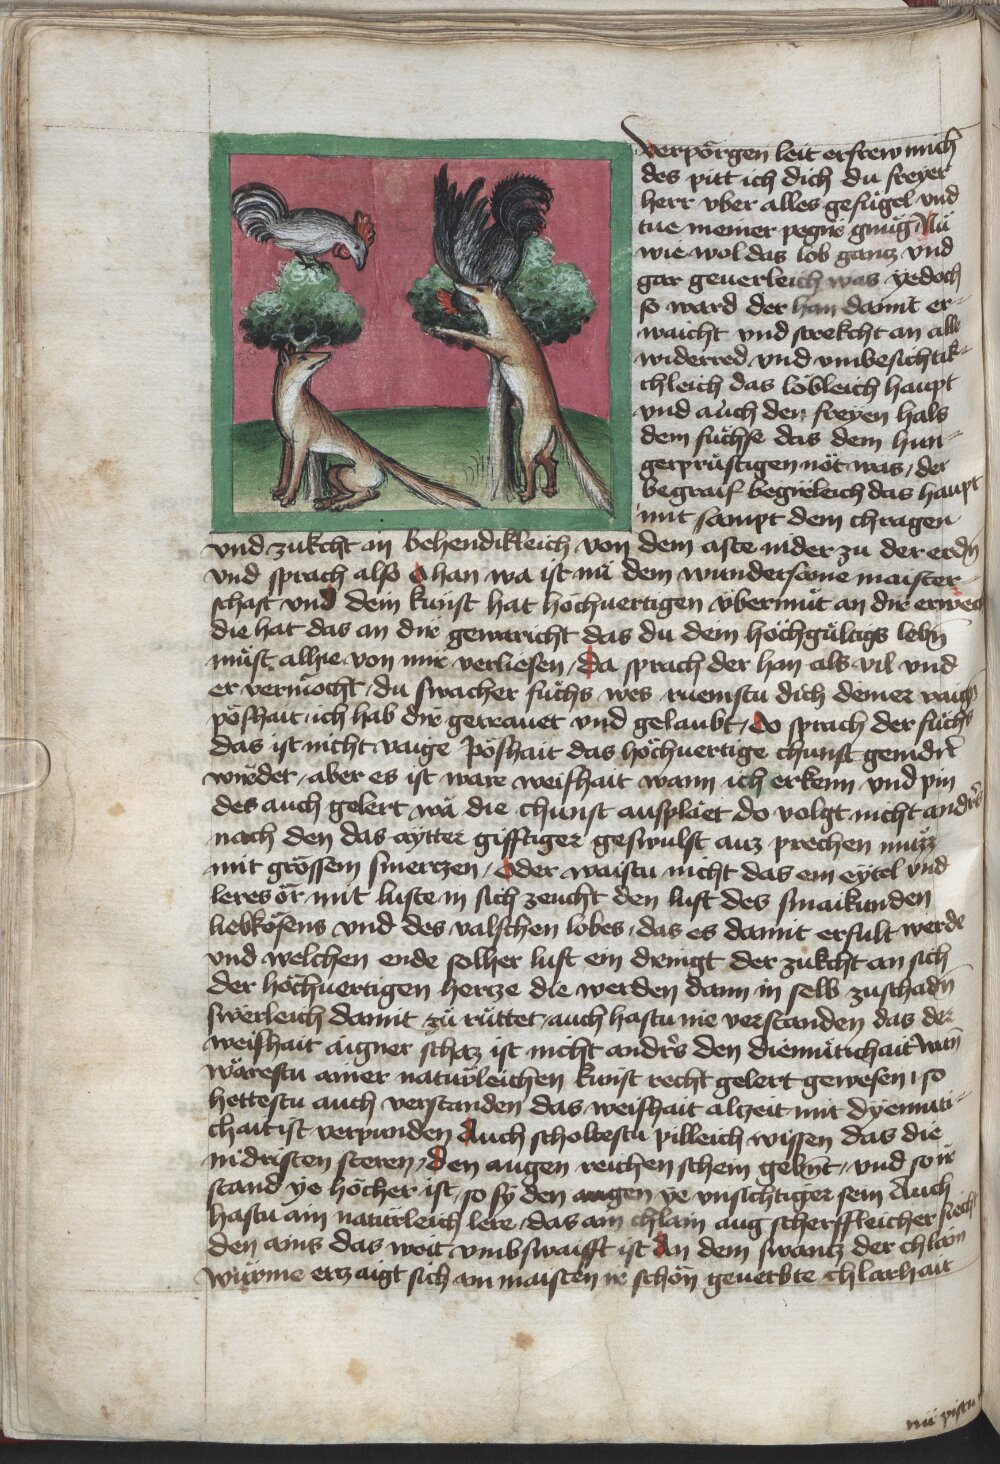 verporgen leit erfrew mich
des pitt ich dich du freyer
herr vber alles gefugel vnd
tue meiner pegir gnug Nu
wie wol das lob gantz vnd
gar geuerleich was yedoch
so ward der han damit er-
waicht vnd strekcht an alle
widerred vnd vmbesichtik-
chleich das lobleich haupt
vnd auch den freyen hals
dem fuchse das dem hun-
gerprustigen not was / der
begraif begirleich das haupt
mit sampt dem chragen
vnd zukcht in behendikleich von dem aste nider zu der erdn
vnd sprach also O han wa ist nu dem wunderscone maister-
schaft vnd dein kunst hat hochuertigen vbermut an dir erweg
die hat das an dir gewaricht das du dein hochgultigs lebn
must alhie von mir verliesen / da sprach der han als vil vnd
er vermocht / du swacher fuchs wes ruemstu dich deiner vaign
poshait / ich hab dir getrauet vnd gelaubt / Do sprach der fuchs
das ist nicht vaige poshait das hochuertige chunst genidrt
wirdet / aber es ist ware weishait wann ich erkenn vnd pin
des auch gelert wa die chunst ausplaet do volgt nicht andrs
nach den das aytter gifftiger geswulst auz prechen muzz
mit grossem smertzen / Oder waistu nicht das ein eytel vnd
leres or mit luste in sich zeucht den luft des smaikunden
liebkosens vnd des valschen lobes / das es damit erfult werde
vnd welchen ende solher luft ein dringt der zukcht an sich
der hochuertigen hertze die werden dann in selb zuschadn
swerleich damit zu ruttet / auch hastu nie verstanden das der
weishait aigner schaz ist nicht andrs den diemutichait wan
warestu ainer naturleichen kunst recht gelert gewesen / so
hettestu auch verstanden das weishait alzeit mit dyemuti-
chait ist verpunden Auch scholtestu pilleich wissen das die
nidristen steren / den augen reichen schein gebnt / vnd so ir
stand ye hocher ist / so sy den augen ye vnsichtiger sein Auch
hastu ain naturleich lere / das ain chlain aug scherffleicher siecht
den ains das weit vmbswaifft ist An dem swantz der chlain
wurme erzaigt sich am maisten ir schon geuerbte chlarhait
nu pistu